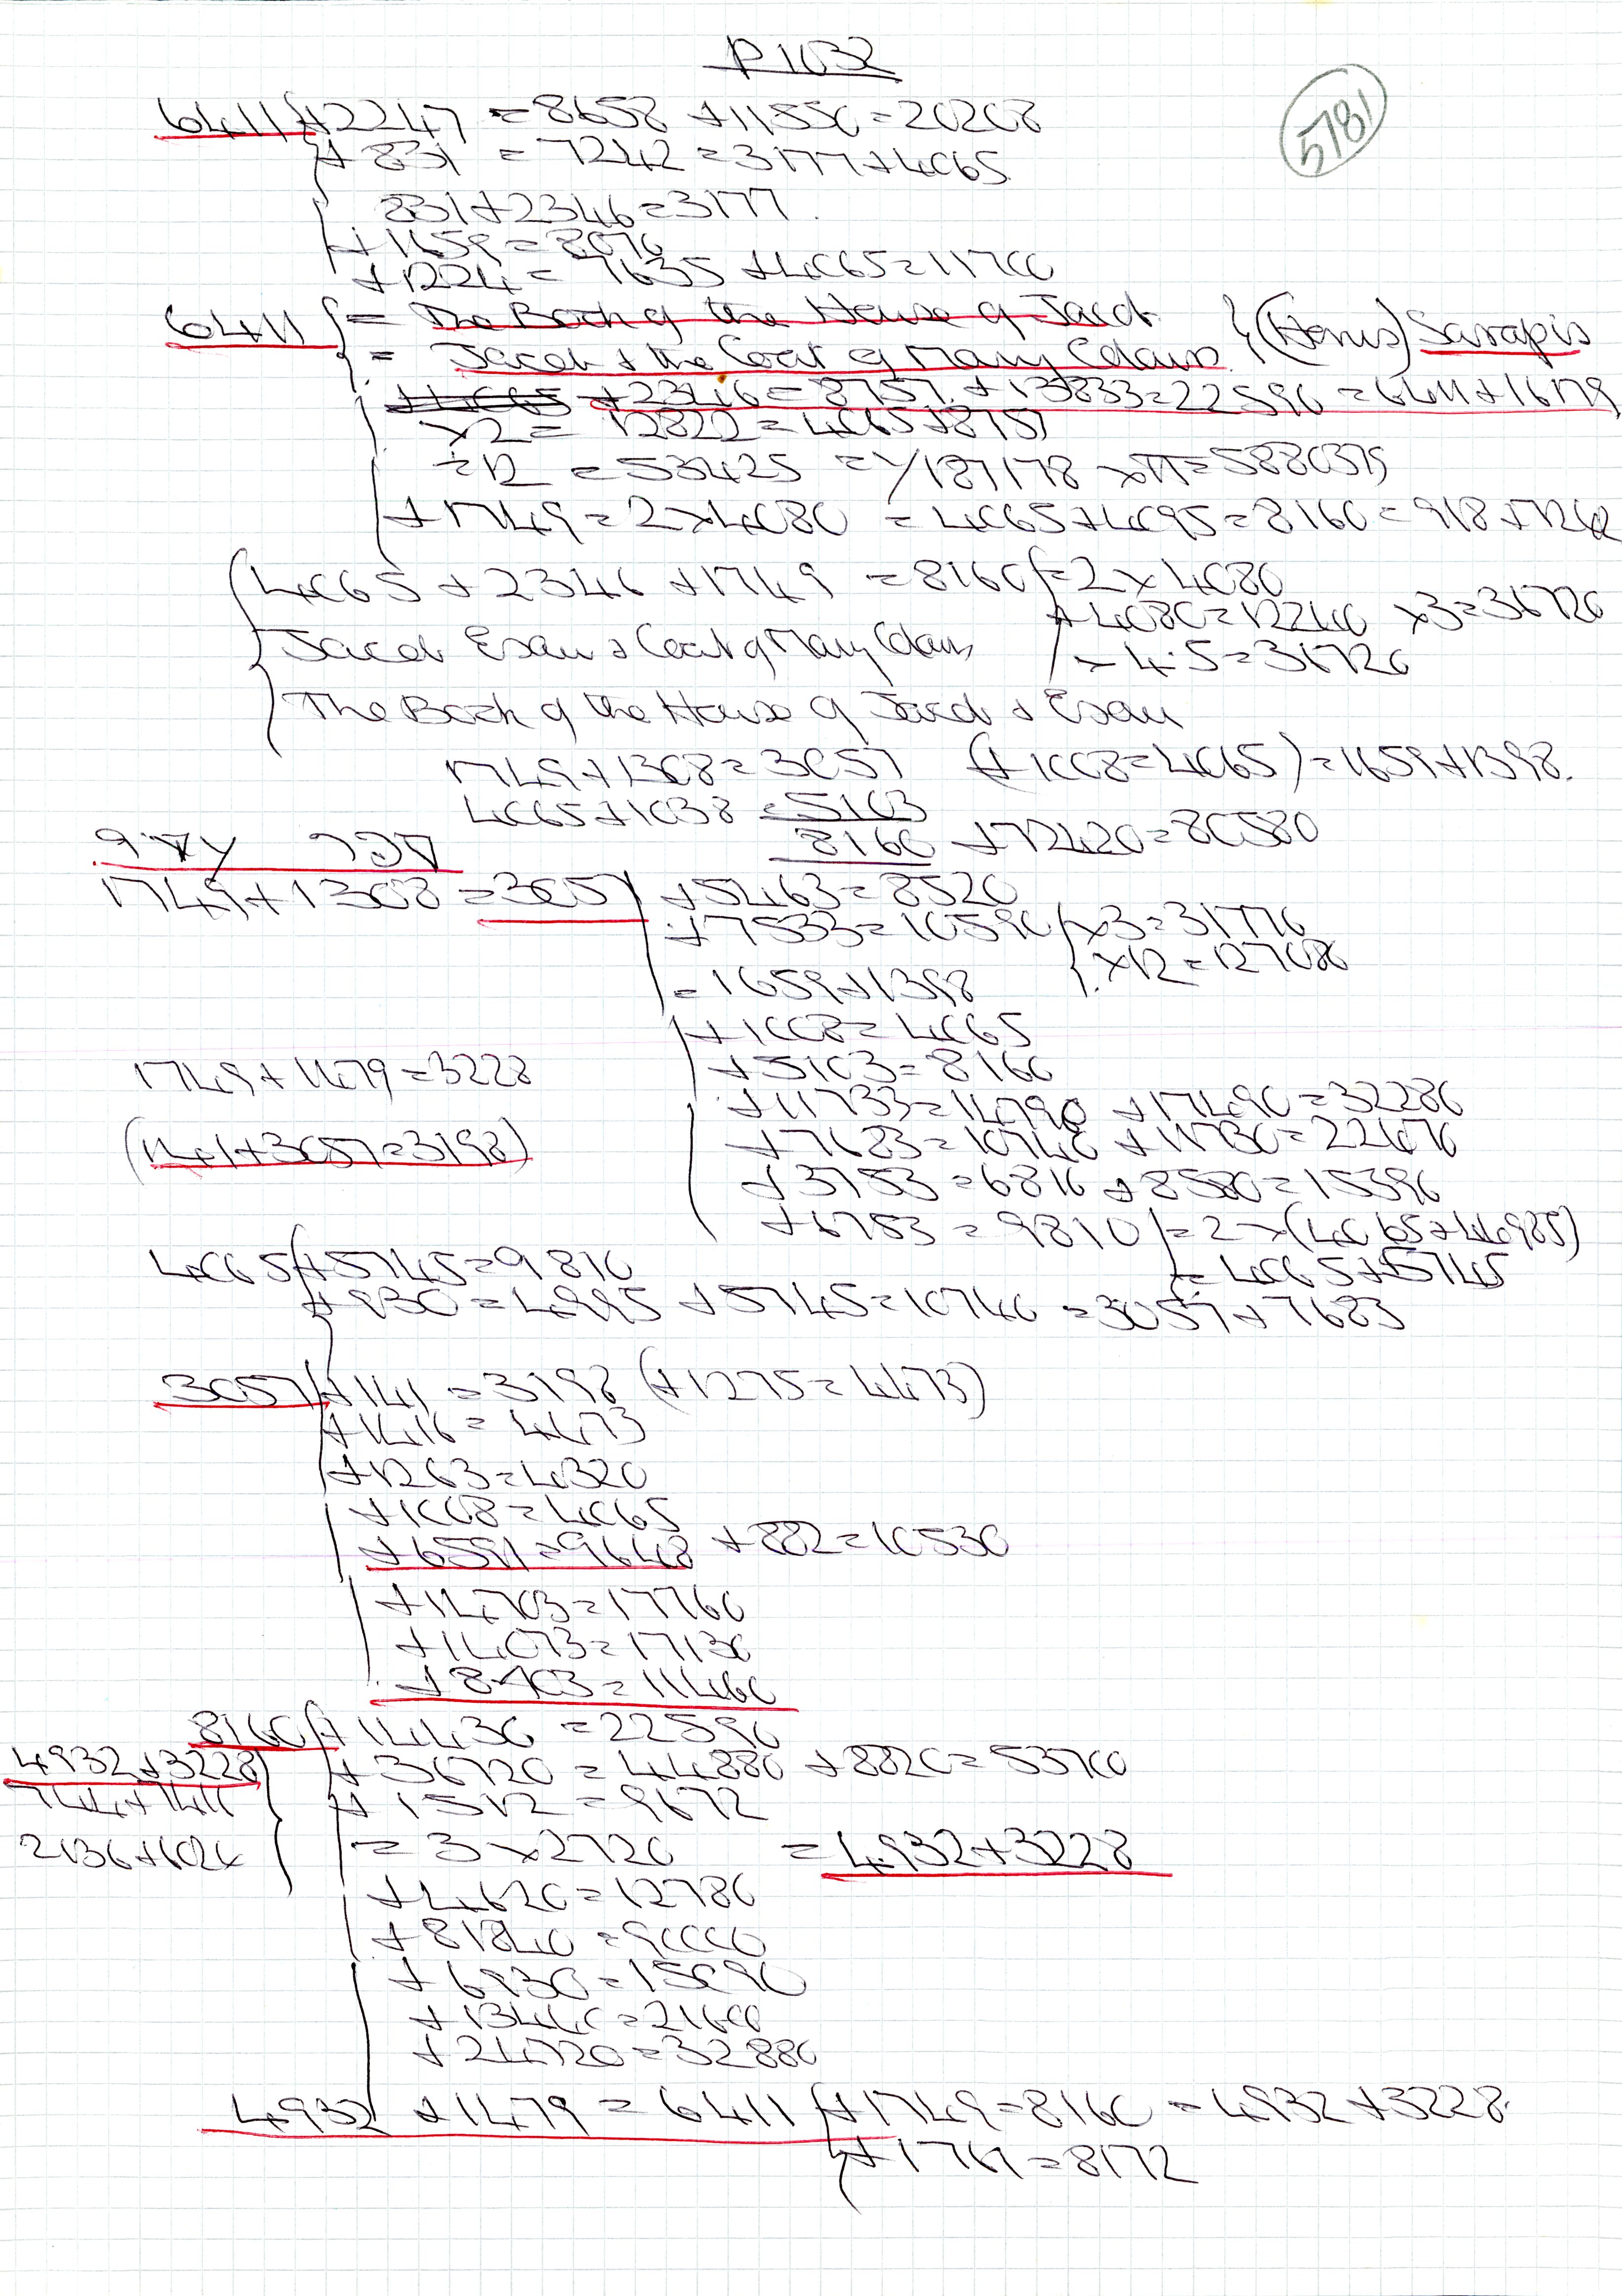 P1032
5781
6411 +2247 = 8658 +11550=20208
+ 831 = 7242 = 3177+4065
831+2346=3177.
+1659=8070
+1224= 7635 +4065=11700
6411 = The Book of the House of Jacob } (Horus) Sarapis
= Jacob & the Coat of Many Colours
+4065 +2346=8757. +13833=22590 =6411+16179
×2= 12822=4065+8757
÷12 =53425 =√187178 ×π=5880379
+1749=2×4080 =4065+4095=8160=918+7242
4065+2346+1749 =8160 =2×4080
+4080=12240 ×3=36720
Jacob Esau & Coat of Many Colours
×4.5=36720
The Book of the House of Jacob & Esau
1749+1308=3057 (+1008=4065)=1659+1398.
4065+1038=5103
8160 +72420=80580
1749+1308=3057 +5463=8520
+7533=10590 ×3=31770
×12=127080
=1659+1398
+1008=4065
1749+1479=3228
+5103=8160
+11733=14790 +17490=32280
(141+3057=3198)
+7683=10740 +11730=22470
+3753=6810 +8580=15390
+6753=9810 =2×(4065+40985)
4065+5745=9810
=4065+5745
+930=4995 +5745=10740 =3057+7683
3057+141 =3198 (+1275=4473)
+1416=4473
+1263=4320
+1008=4065
+6591=9648 +882=10530
+14703=17760
+14073=17130
+8403=11460
8160+14430 =22590
4932+3228
+36720=44880 +8820=53700
+1512=9672
2136+6024
=3×2720 =4932+3228
+4620=12780
+81840=90000
+6930=15090
+13440=21600
+24720=32880
4932 +1479=6411 +1749=8160=4932+3228.
+1761=8172